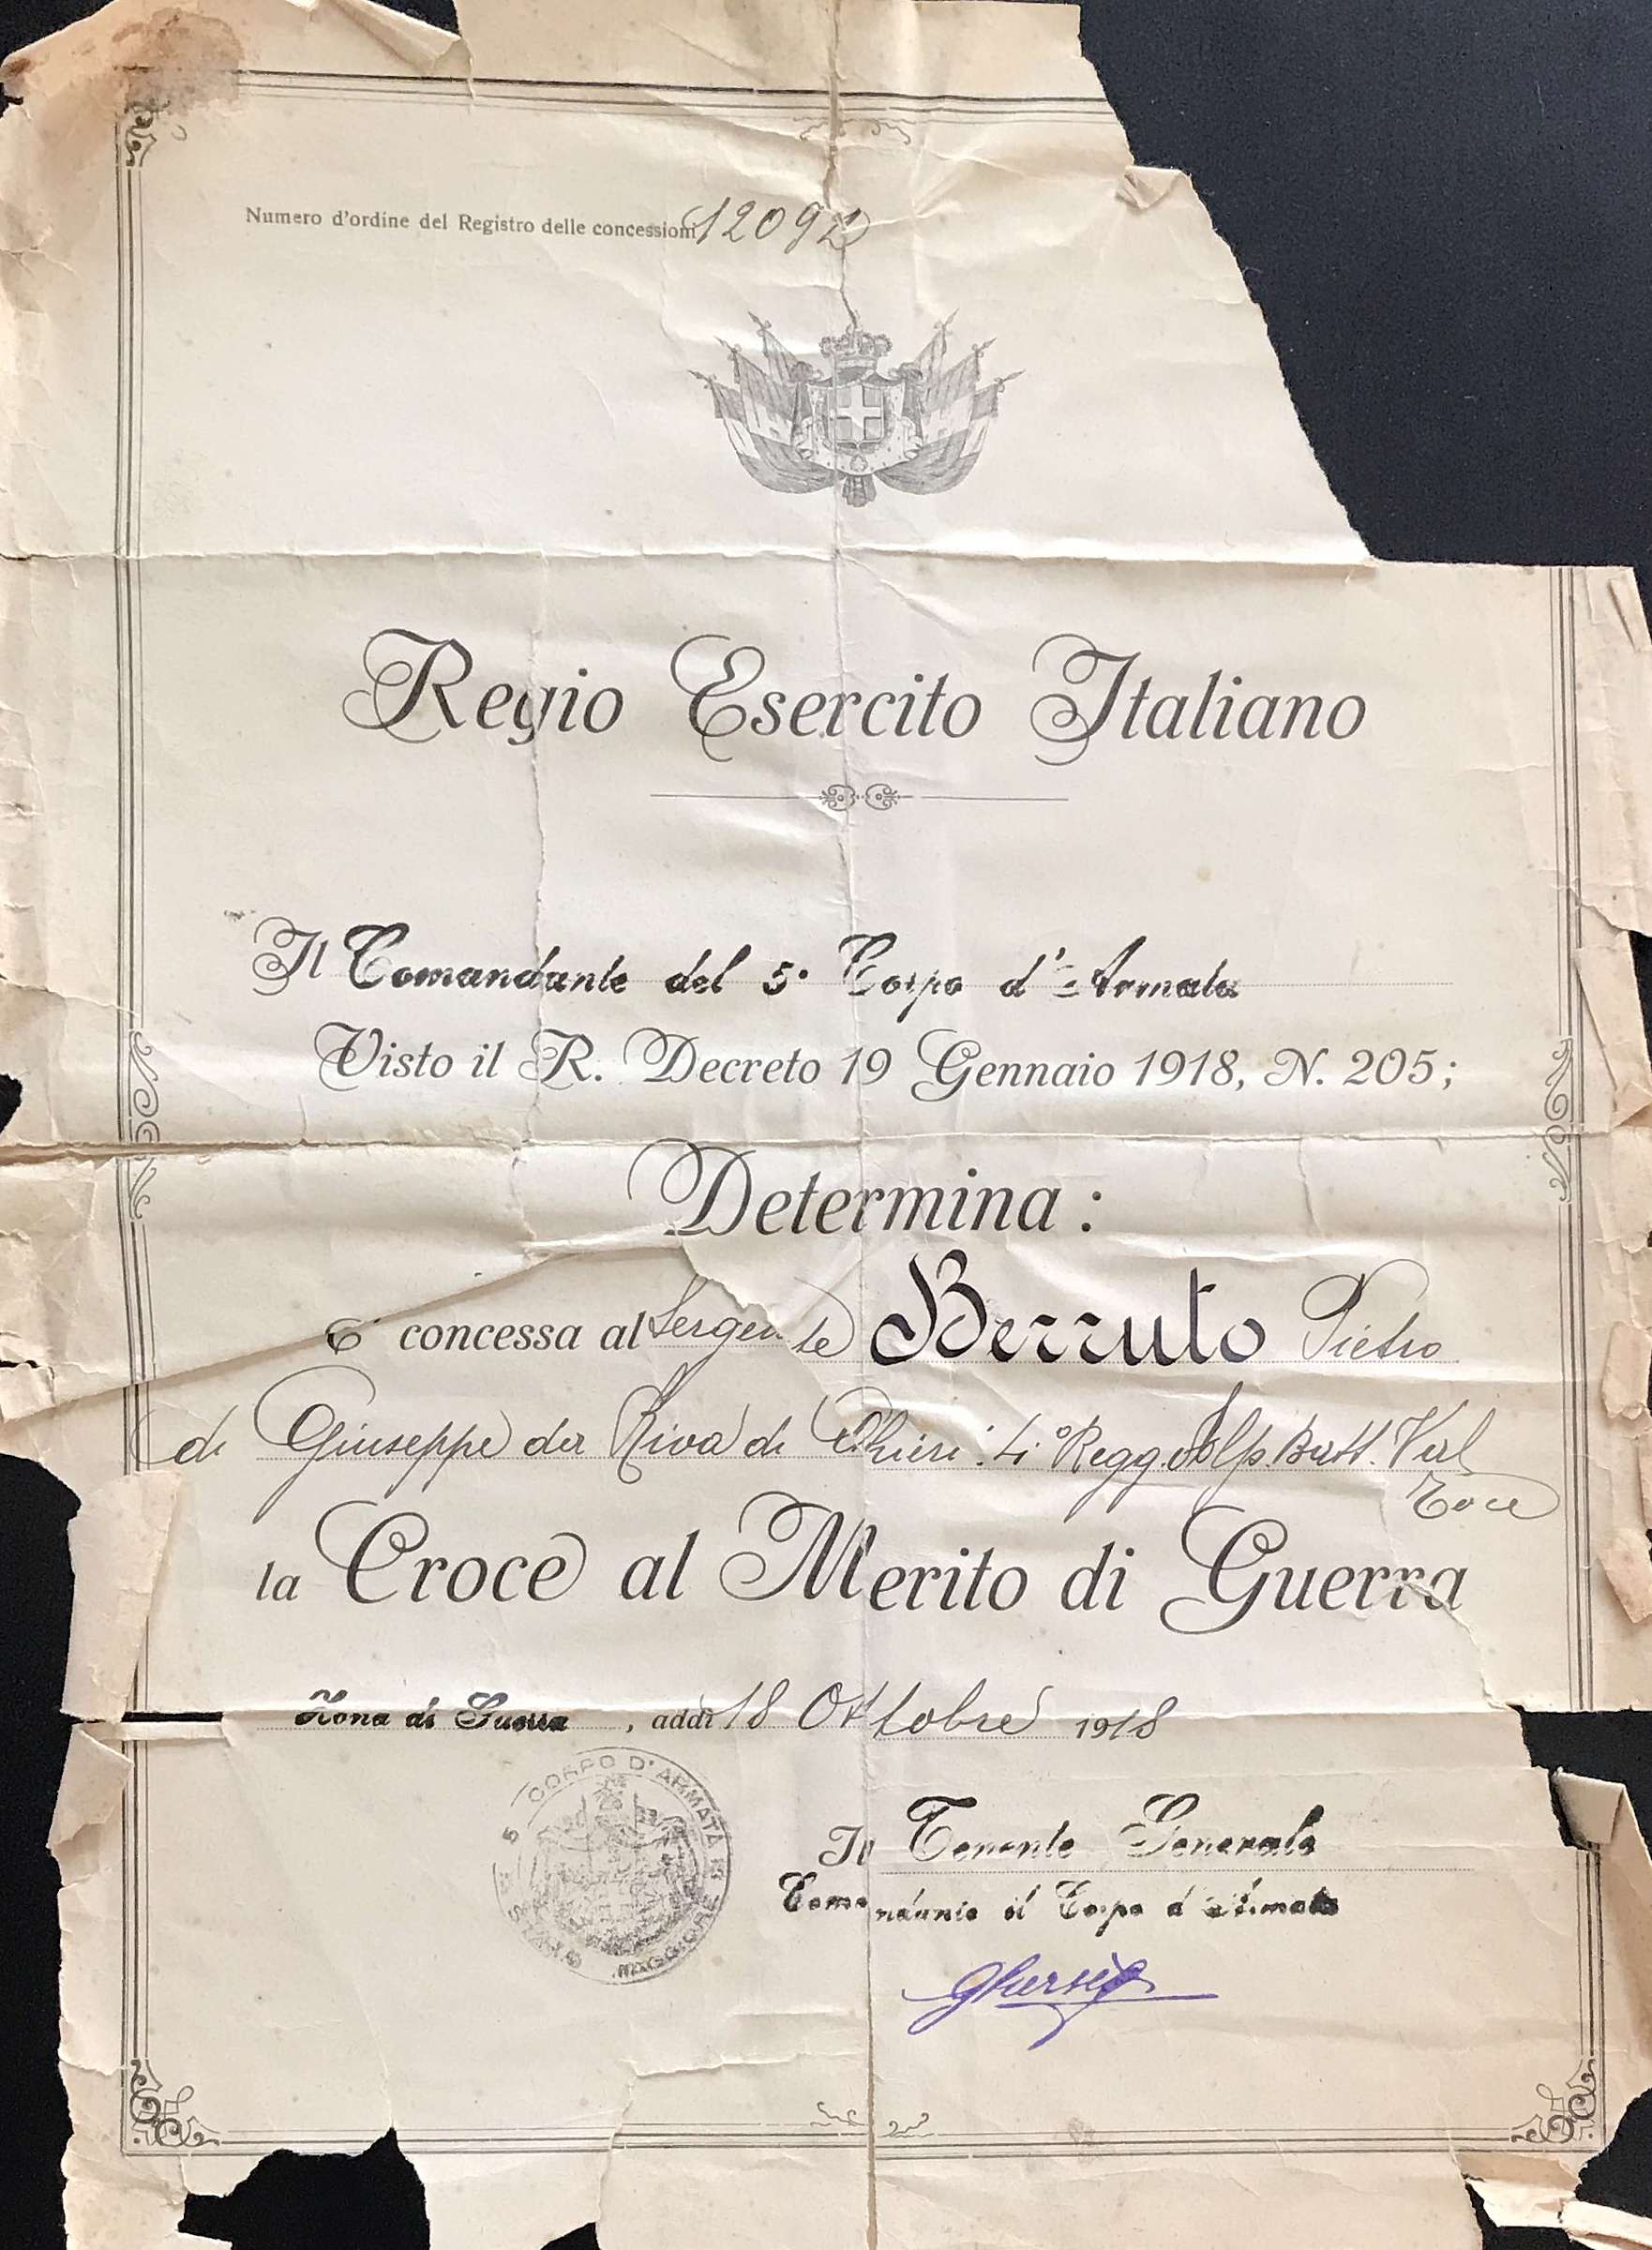 Numero d'ordine del Registro delle concessioni 12092
Regio Esercito Italiano
Il Comandante del 5° Corpo d'Armata
Visto il R. Decreto 19 Gennaio 1918, N. 205;
Determina :
È concessa al Sergente Berruto Pietro
di Giuseppe da Riva di Chieri. 4° Regg. Alp. Batt. Val
Toce
la Croce al Merito di Guerra
Zona di Guerra , addì 18 Ottobre 1918
5 CORPO D'ARMATA
MAGGIORE
Il Tenente Generale
Comandante il Corpo d'Armata